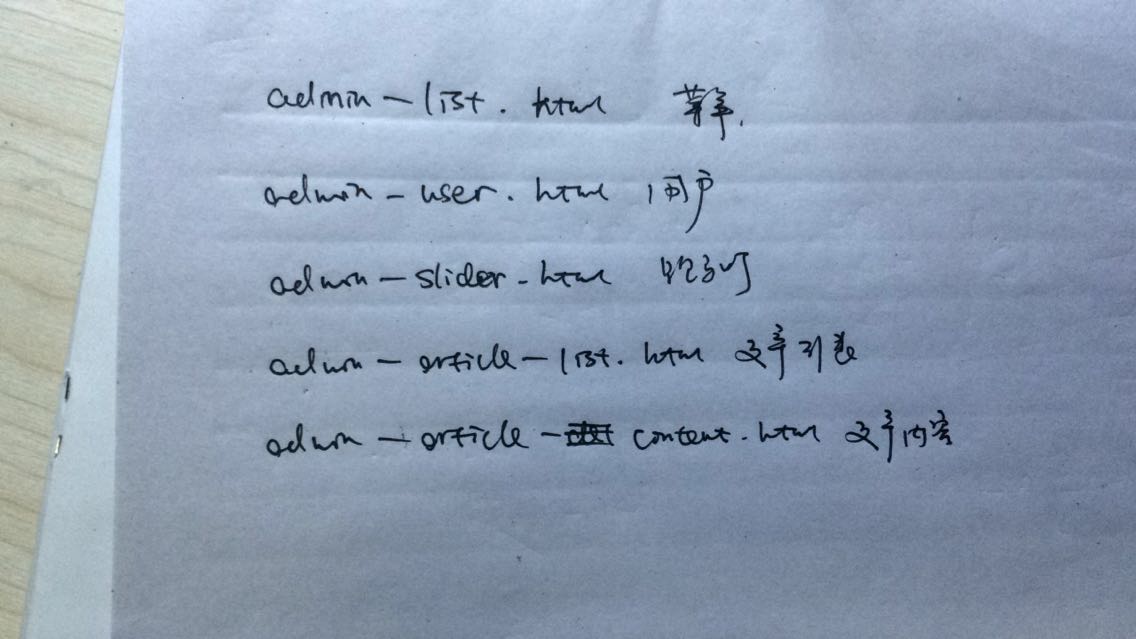 admin-list.html 菜单.
admin-user.html 用户
admin-slider.html
admin-article-list.html 文章列表
admin-article-content.html 文章内容